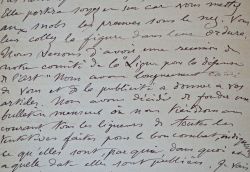 Elle portera songer en son car vous mettez
aux mots les preuves sous le nez. Vous
leur collez la figure dans leur ordure.
Nous venons d'avoir une réunion de
notre comité de la Ligue pour la défense
de l'est. Nous avons longuement causé
de vous et de la publicité à donner à vos
articles. Nous avons décidé de fonder un
bulletin mensuel où nous tiendrons
courant tous les ligueurs de toutes les
tentatives faites pour le bon combat
ce qu'elles sont, par qui, dans quoi
à quelle date elles sont publiées. Je